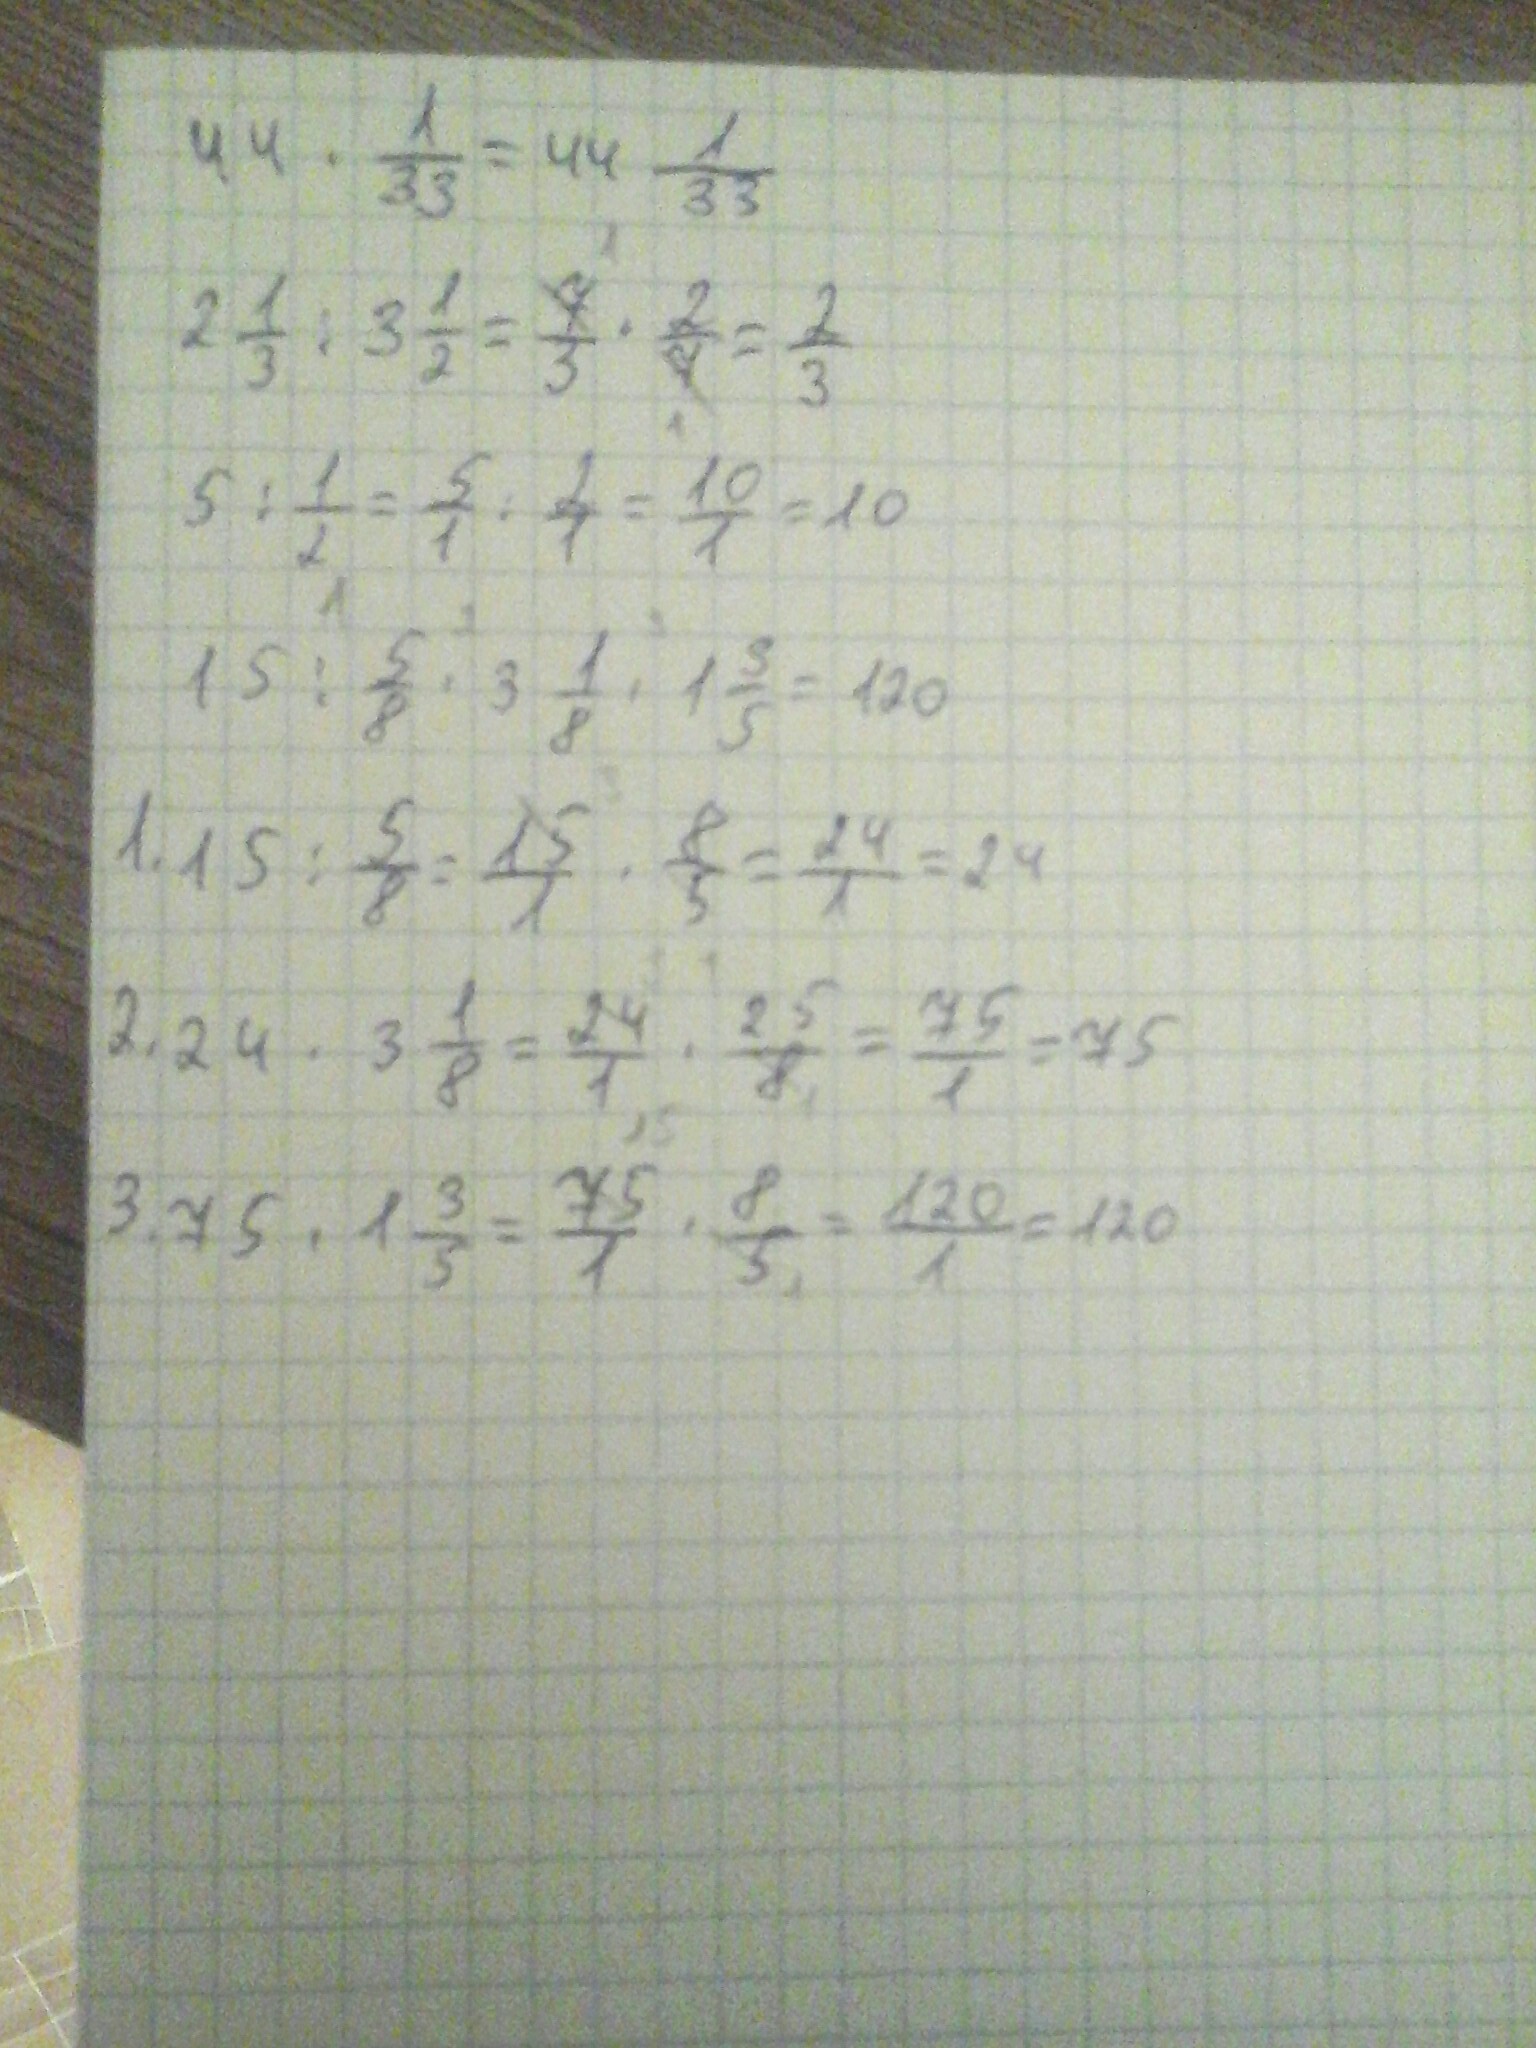 44 · 1/33 = 44 1/33
2 1/3 : 3 1/2 = 7/3 · 2/7 = 2/3
5 : 1/2 = 5/1 · 2/1 = 10/1 = 10
15 : 5/8 · 3 1/8 · 1 3/5 = 120
1. 15 : 5/8 = 15/1 · 8/5 = 24/1 = 24
2. 24 · 3 1/8 = 24/1 · 25/8 = 75/1 = 75
3. 75 · 1 3/5 = 75/1 · 8/5 = 120/1 = 120